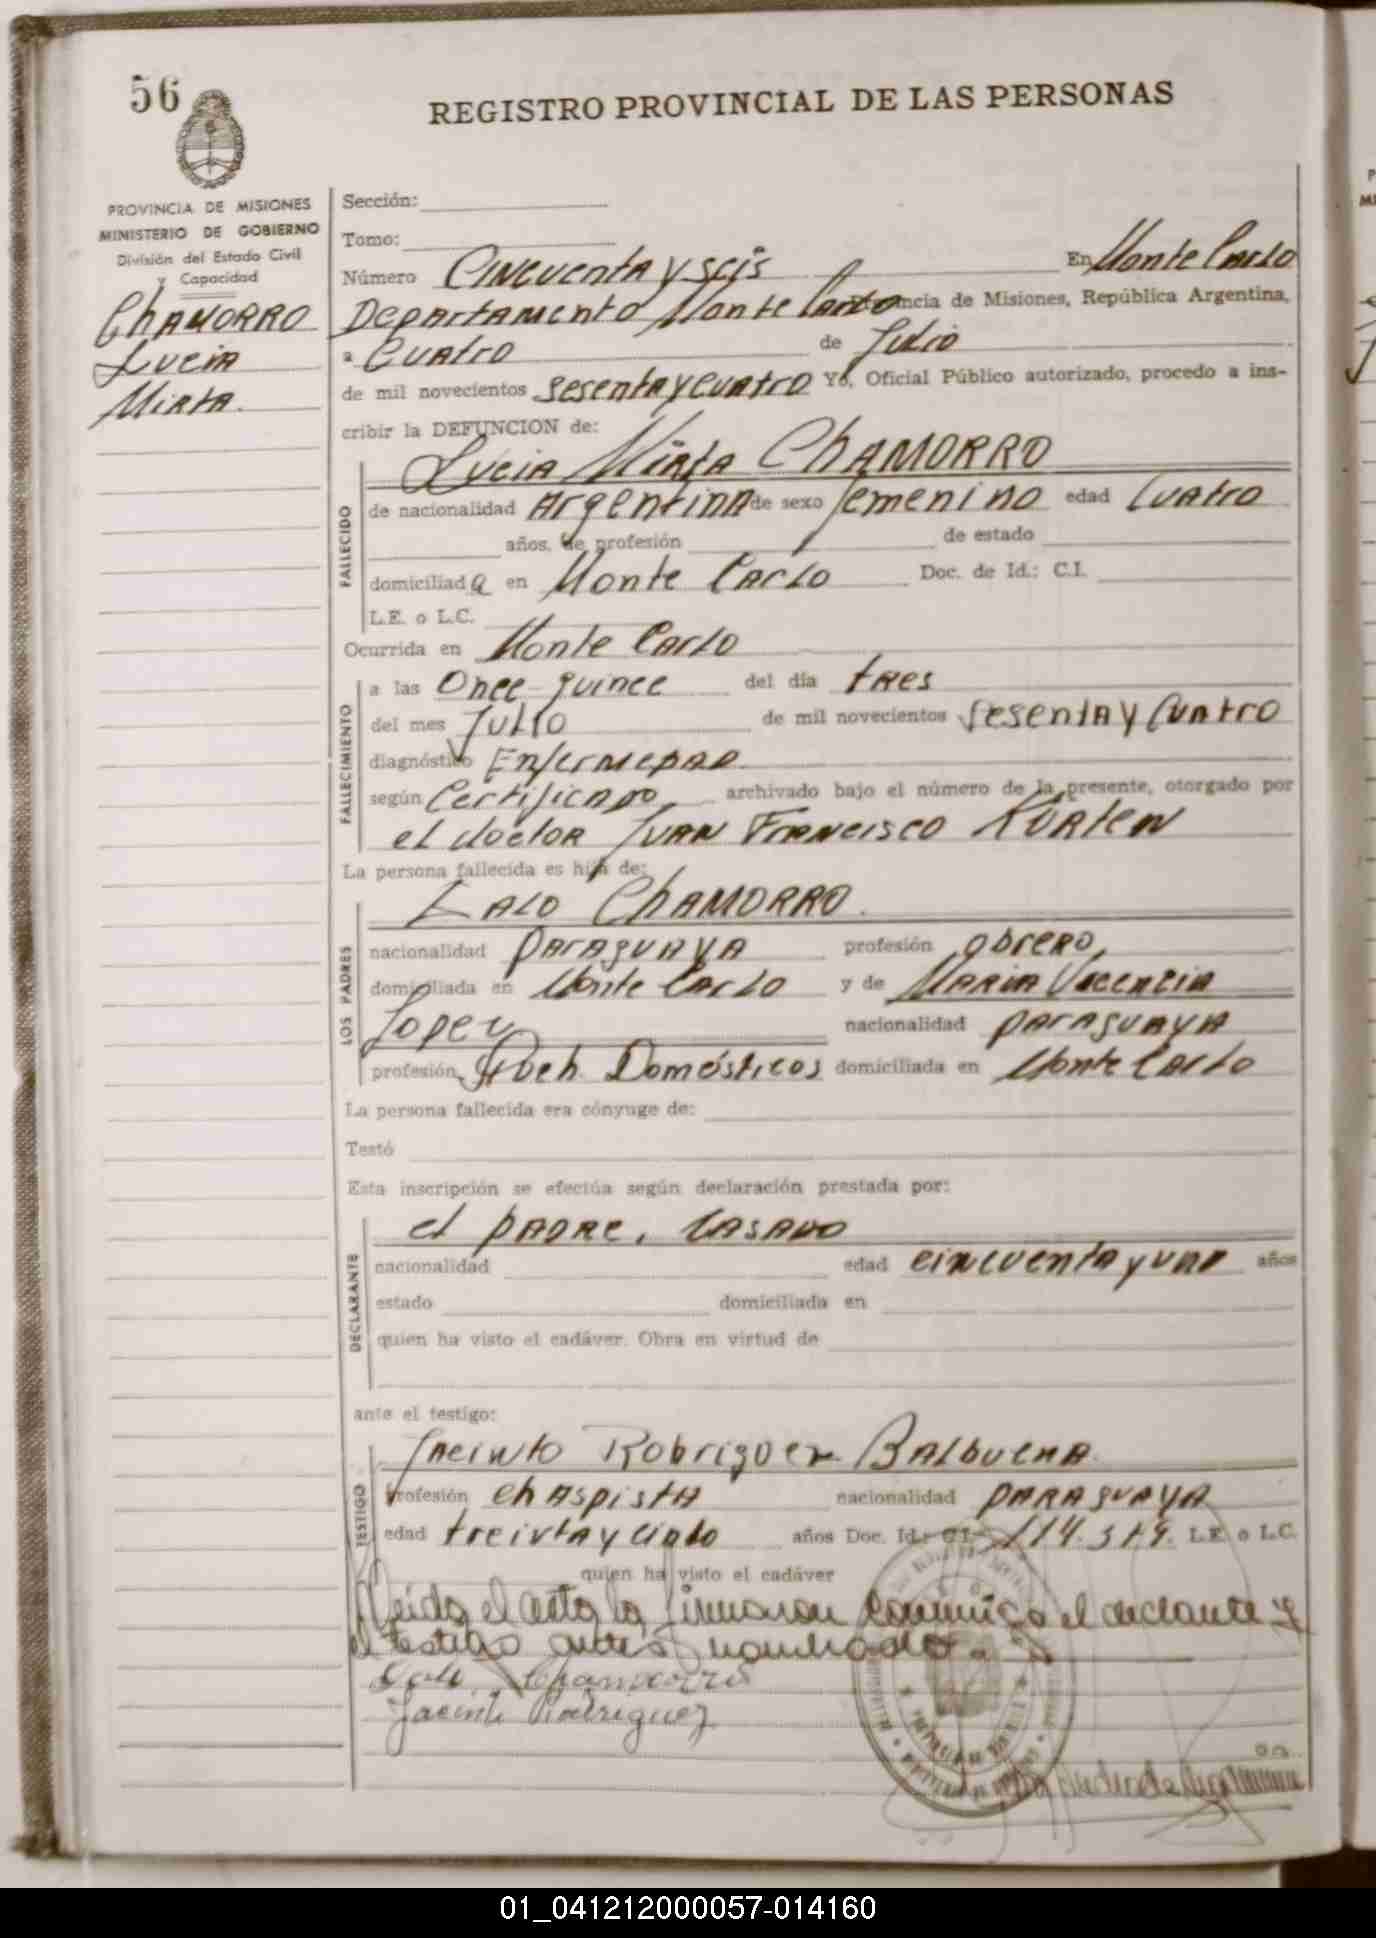 56
REGISTRO PROVINCIAL DE LAS PERSONAS
PROVINCIA DE MISIONES
MINISTERIO DE GOBIERNO
División del Estado Civil
y Capacidad
CHAMORRO
Lucia
Mirta.
Sección:
Tomo:
Número Cincuenta y seis En Monte Carlo
Departamento Monte Carlo Provincia de Misiones, República Argentina,
a Cuatro de Julio
de mil novecientos sesenta y cuatro Yo, Oficial Público autorizado, procedo a ins-
cribir la DEFUNCION de:
Lucia Mirta CHAMORRO
FALLECIDO
de nacionalidad Argentina de sexo femenino edad Cuatro
años, de profesión de estado
domiciliada en Monte Carlo Doc. de Id.: C.I.
L.E. o L.C.
Ocurrida en Monte Carlo
FALLECIMIENTO
a las Once quince del día tres
del mes Julio de mil novecientos sesenta y Cuatro
diagnóstico Enfermedad
según Certificado archivado bajo el número de la presente, otorgado por
el doctor Juan Francisco Kurten
La persona fallecida es hija de:
LOS PADRES
Lalo CHAMORRO.
nacionalidad paraguaya profesión obrero,
domiciliada en Monte Carlo y de Maria
Lopez nacionalidad paraguaya
profesión Domésticos domiciliada en Monte Carlo
La persona fallecida era cónyuge de:
Testó
Esta inscripción se efectúa según declaración prestada por:
DECLARANTE
el padre, casado
nacionalidad edad cincuenta y uno años
estado domiciliada en
quien ha visto el cadáver. Obra en virtud de
ante el testigo:
TESTIGO
Jacinto Rodriguez Balbuena.
profesión chaspista nacionalidad paraguaya
edad treinta y cinco años Doc. Id.: C.I. L.E. o L.C.
quien ha visto el cadáver
Leida el acta la firmaron conmigo el declarante y
el testigo antes nombrado.
Lalo Chamorro
Jacinto Rodriguez
01_041212000057-014160